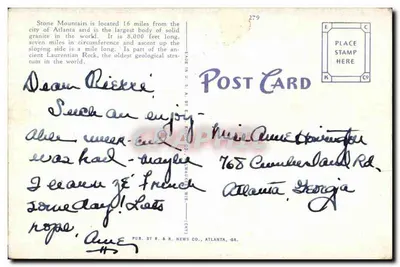 Stone Mountain is located 16 miles from the
city of Atlanta and is the largest body of solid
granite in the world. It is 8,000 feet long,
seven miles in circumference and ascent up the
sloping side is a mile long. Is part of the an-
cient Laurentian Rock, the oldest geological stra-
tum in the world.
279
POST CARD
PLACE
STAMP
HERE
E K C
K Co
Dear Pierre!
Such an enjoy-
able week-end
was had - maybe
I learn ze' French
some day! Let's
hope.
Anne
Miss Anne Harrington
768 Cumberland Rd.
Atlanta, Georgia
PUB. BY R. & R. NEWS CO., ATLANTA, GA.